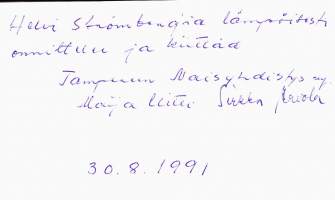 Helvi Strömbergiä lämpöisesti
onnittelee ja kiittää
Tampereen Naisyhdistys ry.
Maija Sirkka
30.8.1991